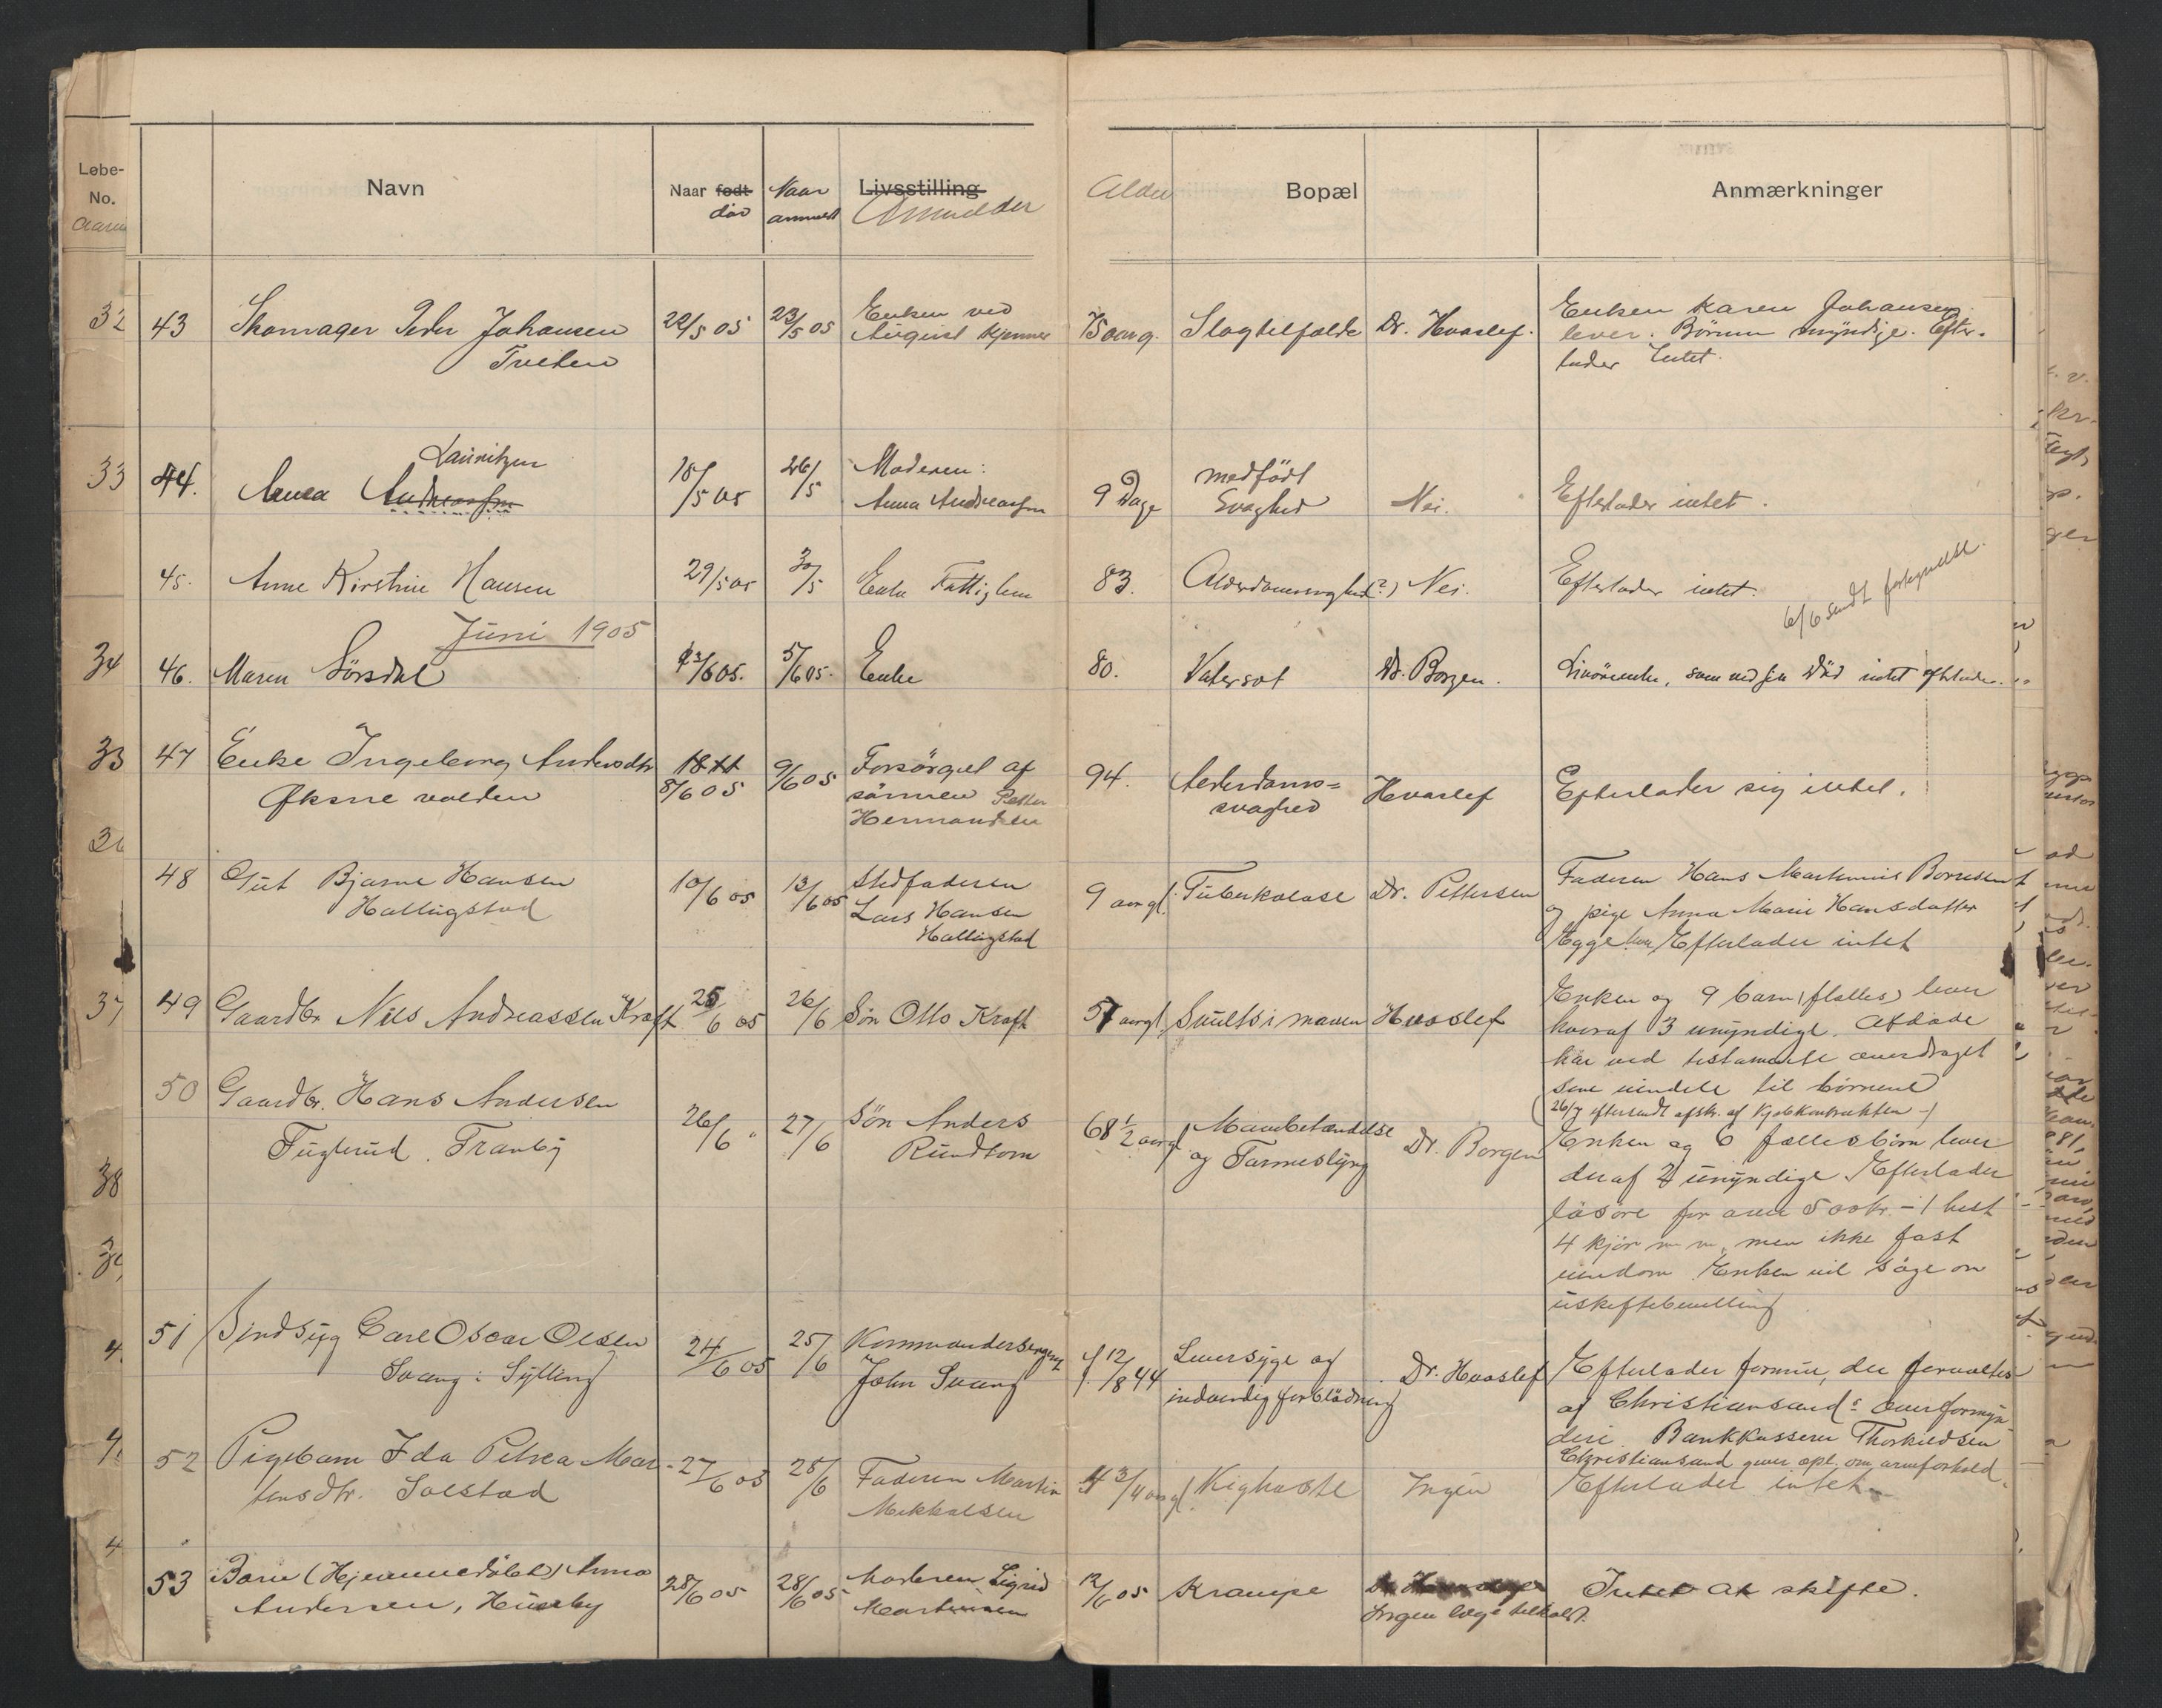 Løbe-
No.
Navn
Naar født
død
Naar
anmeldt
Livsstilling
Anmelder
Alder
Bopæl
Anmærkninger
32
43
Skomager Peder Johansen
Tveten
22/5 05
23/5 05
Enken ved
August
75 aarg.
Slagtilfælde
Dr. Hvoslef.
Enken Karen Johansen
lever. Börnene myndige. Efter-
lader Intet.
33
44.
Lauritzen
Anna Andreassen
18/5 05
26/5
Moderen:
Anna Andreassen
9 Dage
medfödt
Svaghed
Nei.
Efterlader intet.
45.
Anne Kirstine Hansen
29/5 05
30/5
Enke Fattiglem
83.
Alderdomssvaghed (?)
Nei.
Efterlader intet.
6/6 sendt fortegnelse.
Juni 1905
34
46.
Maren Sörsdal
3/6 05.
5/6 05.
Enke
80.
Vatersot
Dr. Borgen.
som ved sin Död intet efterlader.
33
47
Enke Ingeborg Andersdtr
Øksne valden
8/6 05
9/6 05
Forsörget af
sönnen Petter
Hermansen
94.
Alderdoms=
svaghed
Hvoslef
Efterlader sig intet.
48
Gut Bjarne Hansen
Hallingstad
10/6 05
13/6 05
Stedfaderen
Lars Hansen
Hallingstad
9 aargl.
Tuberkolose
Dr. Pettersen
Faderen Hans Martinius Borresen
og pige Anna Marie Hansdatter
Egge lever Efterlader intet
37
49
Gaardbr. Nils Andreassen Kraft
25/6 05
26/6
Sön Otto Kraft
57 aargl.
Svulst i maven
Hvoslef
Enken og 9 barn (fælles) lever
hvoraf 3 umyndige. Afdöde
har ved testamente overdraget
sine eiendele til börnene
(26/7 eftersendt afskr. af Kjöbekontrakten -)
50
Gaardbr. Hans Andersen
Fuglerud. Tranby
26/6 "
27/6
Sön Anders
Rundtom
68 1/2 aargl
Mavebetændelse
og Tarmeslyng
Dr. Borgen
Enken og 6 fællesbörn lever
deraf 2 umyndige Efterlader
lösöre for over 500 kr. - 1 hest
4 kjör m m, men ikke fast
eiendom. Enken vil söge om
uskiftebevilling
38
51
Sindsyg Carl Oscar Olsen
Svang i Sylling
24/6 05
25/6
Kommandersergent
John Svang
f. 12/8 44
Leversyge og
indvendig forblödning
Dr. Hvoslef
Efterlader formue, der forvaltes
af Christiansands overformyn
deri Bankkasserer Thorkildsen
Christiansand giver opl. om arveforhold.
52
Pigebarn Ida Petrea Mar-
tinsdtr. Solstad
27/6 05
28/6
Faderen Martin
Mekkelsen
4 3/4 aargl.
Kighoste
Ingen
Efterlader intet
53
Barn (Hjemmedöbt) Anna
Andersen, Huseby
28/6 05
28/6 05
Moderen Sigrid
Martinsen
12/6 05
Krampe
Ingen læge tilkaldt.
Intet at skifte.